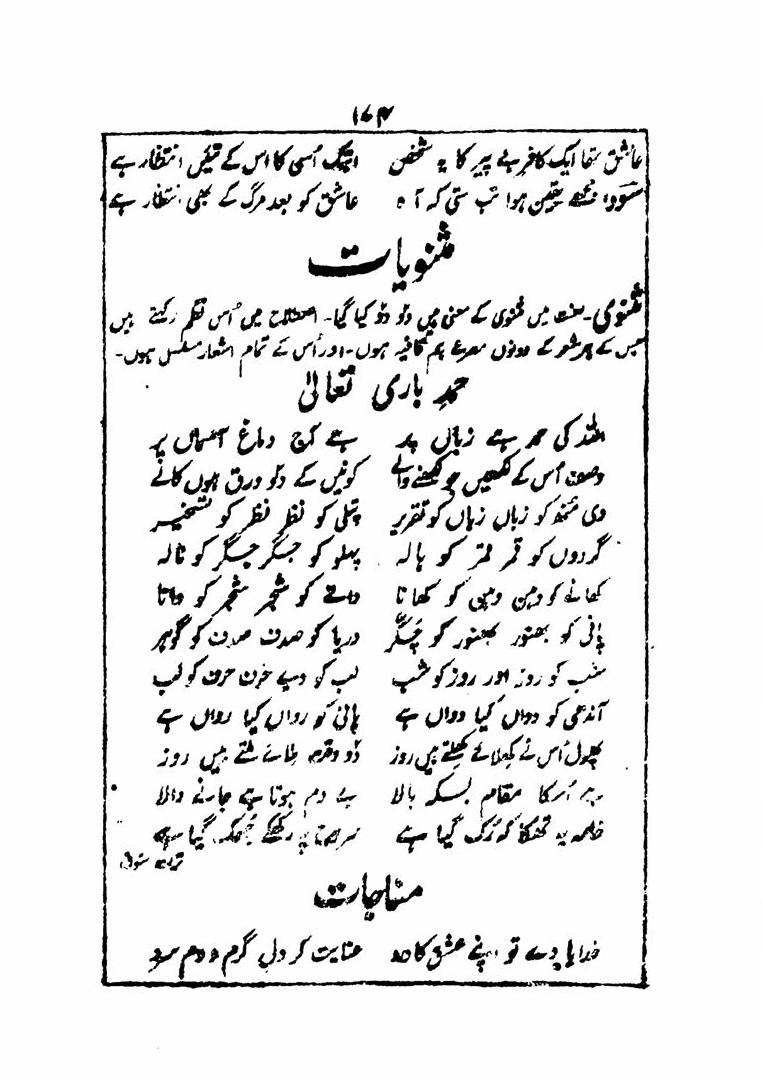 ۱۶۴
عاشق تھا ایک کافر بے پیر کا یہ شخص ابتک اُسی کا اس کے تئیں انتظار ہے
سودا مجھے یقین ہوا تب ستی کہ آہ عاشق کو بعد مرگ کے بھی انتظار ہے
مثنویات
مثنوی۔ لغت میں مثنوی کے معنی ہیں دو دو کیا گیا۔ اصطلاح میں اُس نظم رکہتے ہیں
جس کے ہر شعر کے دونوں مصرعے ہم قافیہ ہوں۔ اور اُس کے تمام اشعار مسلسل ہوں۔
حمدِ باری تعالیٰ
اللہ کی حمد ہے زباں پر ہے آج دماغ آسماں پر
وصف اُس کے لکھیں جو لکھنے والے کونین کے دو ورق ہوں کالے
دی منھ کو زباں زباں کو تقریر پتلی کو نظر نظر کو تسخیر
گردوں کو قمر قمر کو ہالہ پہلو کو جگر جگر کو نالہ
کھانے کو دہن دہن کو کھانا دانے کو شجر شجر کو دانا
پانی کو بھنور بھنور کو چکّر دریا کو صدف صدف کو گوہر
شب کو روز اور روز کو شب لب کو دیے حرف حرف کو لب
آندھی کو دواں کیا دواں ہے پانی کو رواں کیا رواں ہے
پھول اُس نے کھلائے کھلتے ہیں روز دو وقت ملائے ملتے ہیں روز
ہے اُسکا مقام بسکہ بالا بے دم ہوتا ہے جانے والا
خامہ یہ تھکا کہ رُک گیا ہے سر صفحہ پہ رکھکے جھک گیا ہے
ترانہ شوق
مناجات
خدایا دے تو اپنے عشق کا عنایت کر دلِ گرم و دم سرد